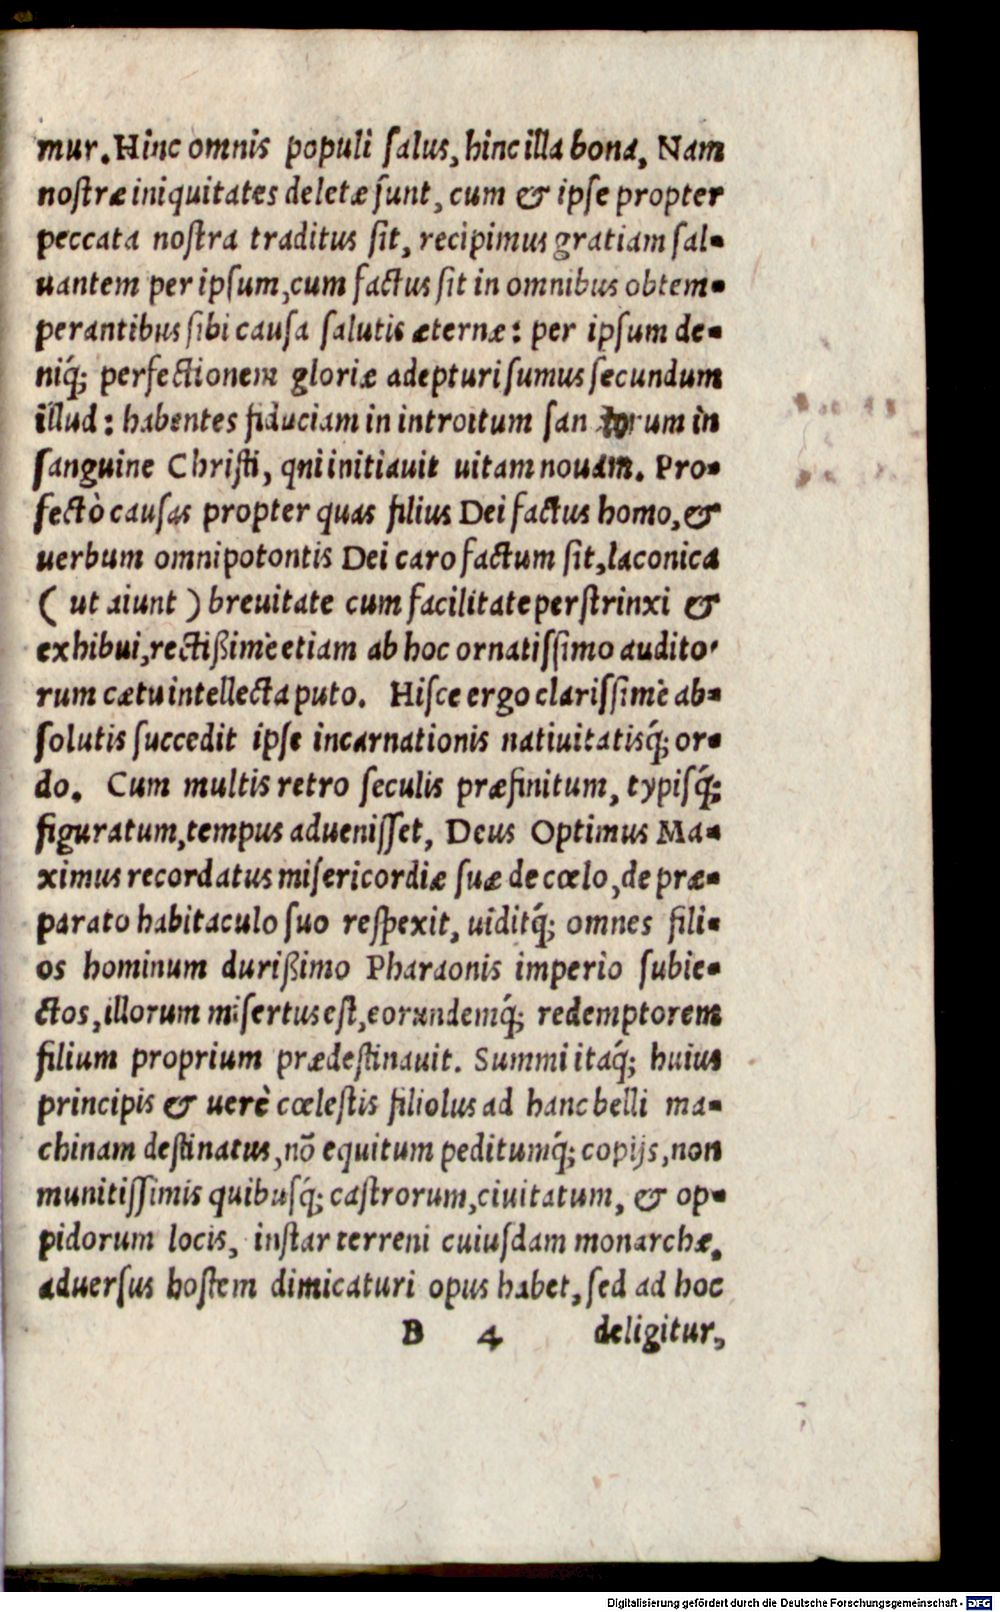 mur. Hinc omnis populi ſalus, hinc illa bona, Nam
noſtræ iniquitates deletæ ſunt, cum & ipſe propter
peccata noſtra traditus ſit, recipimus gratiam ſal-
uantem per ipſum, cum factus ſit in omnibus obtem-
perantibus ſibi cauſa ſalutis æternæ: per ipſum de-
niq́; perfectionem gloriæ adepturi ſumus ſecundum
illud: habentes fiduciam in introitum ſan torum in
ſanguine Chriſti, qni initiauit uitam nouam. Pro-
fectò cauſas propter quas filius Dei factus homo, &
uerbum omnipotontis Dei caro factum ſit, laconica
( ut aiunt ) breuitate cum facilitate perſtrinxi &
exhibui, rectißimè etiam ab hoc ornatiſſimo audito-
rum cætu intellecta puto. Hiſce ergo clariſſimè ab-
ſolutis ſuccedit ipſe incarnationis natiuitatisq́; or-
do. Cum multis retro ſeculis præfinitum, typiſq́;
figuratum, tempus adueniſſet, Deus Optimus Ma-
ximus recordatus miſericordiæ ſuæ de cœlo, de præ-
parato habitaculo ſuo reſpexit, uiditq́; omnes fili-
os hominum durißimo Pharaonis imperio ſubie-
ctos, illorum miſertus eſt, eorundemq́; redemptorem
filium proprium prædeſtinauit. Summi itaq́; huius
principis & uerè cœleſtis filiolus ad hanc belli ma-
chinam deſtinatus, nõ equitum peditumq́; copijs, non
munitiſſimis quibuſq́; caſtrorum, ciuitatum, & op-
pidorum locis, inſtar terreni cuiuſdam monarchæ,
aduerſus hoſtem dimicaturi opus habet, ſed ad hoc
B 4 deligitur,
Digitalisierung gefördert durch die Deutsche Forschungsgemeinschaft - DFG